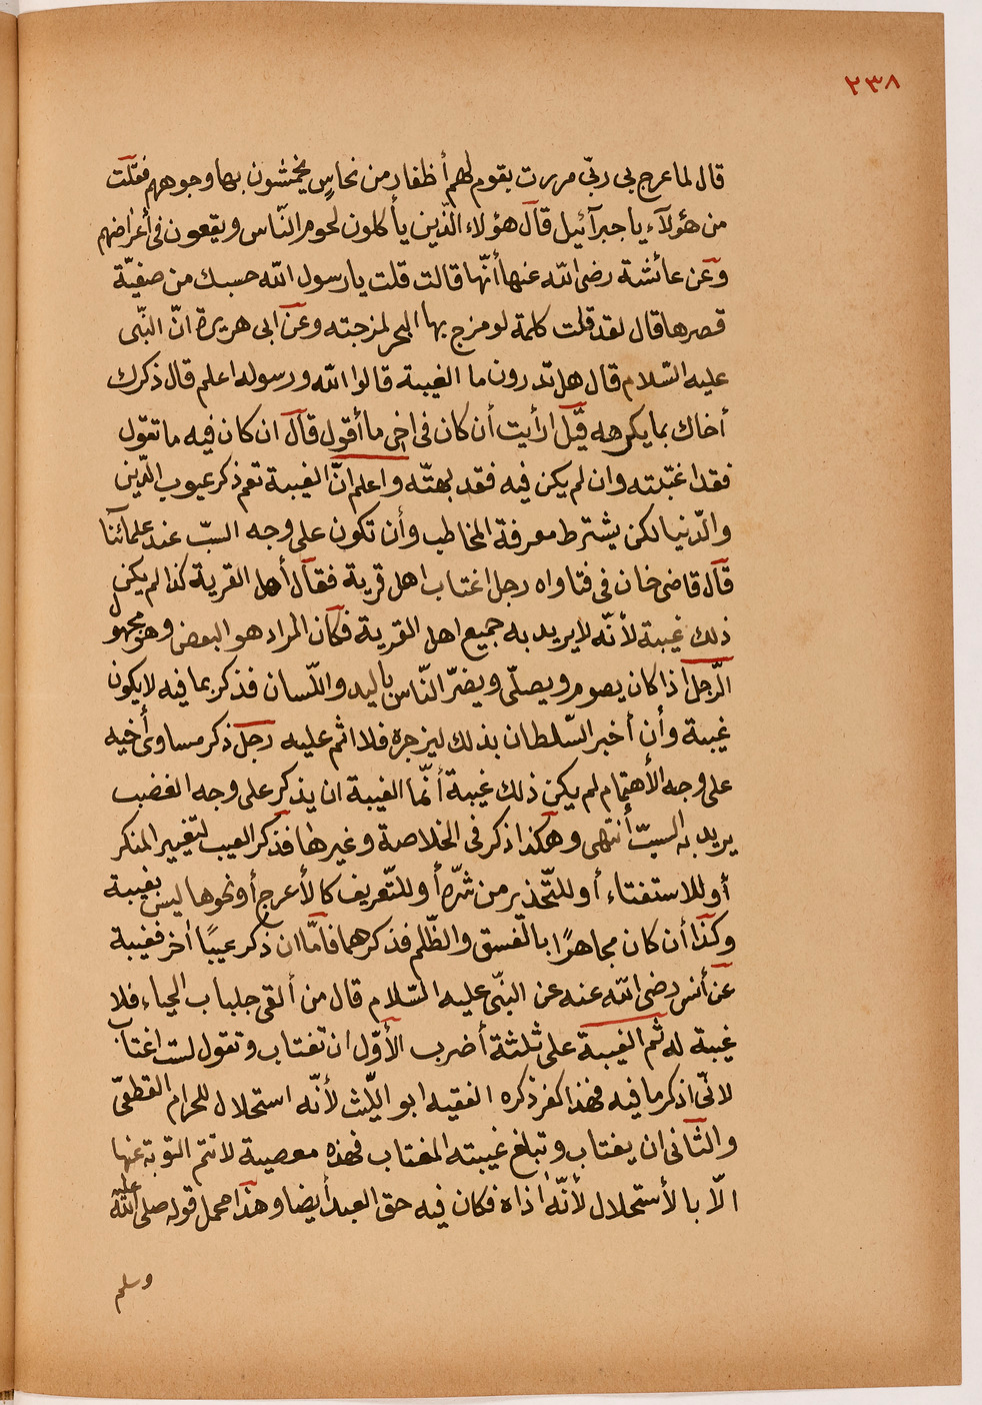 ٢٣٨
قال لما عرج بى ربّى مررت بقوم لهم أظفار من نحاسٍ يخمشون بها وجوههم فقلت
من هؤلآء ياجبرآئيل قال هؤلاء الّذين يأكلون لحوم النّاس ويقعون فى أعراضهم
وعن عائشة رضى الله عنها أنّها قالت قلت يارسول الله حسبك من صفيّة
قصرها قال لقد قلت كلمة لو مزج بها البحر لمزجته وعن ابى هريرة انّ النّبى
عليه السّلام قال هل تدرون ما الغيبة قالوا الله ورسوله اعلم قال ذكرك
أخاك بما يكرهه قيل ارأيت أن كان فى اخى ما أقول قال ان كان فيه ما تقول
فقد اغتبته وان لم يكن فيه فقد بهتّه واعلم انّ الغيبة تعم ذكر عيوب الدّين
والدّنيا لكن يشترط معرفة المخاطب وأن تكون على وجه السبّ عند علمآئنا
قال قاضى خان فى فتاواه رجل اغتاب اهل قرية فقال أهل القرية كذا لم يكن
ذلك غيبة لأنّه لايريد به جميع اهل القرية فكان المراد هو البعض وهو مجهول
الرّجل اذا كان يصوم ويصلّى ويضرّ النّاس باليد واللّسان فذكر بما فيه لايكون
غيبة وأن أخبر السّلطان بذلك ليزجره فلا اثم عليه رجل ذكر مساوى أخيه
على وجه الأهتمام لم يكن ذلك غيبة أنّما الغيبة ان يذكر على وجه الغضب
يريد به السبّ أنتهى وهكذا ذكر فى الخلاصة وغيرها فذكر العيب لتغيير المنكر
أو للاستفتاء أو للتّحذير من شرّه أو للتّعريف كالأعرج أو نحوها ليس بغيبة
وكذا أن كان مجاهرًا بالفسق والظّلم فذكرهما فامّا ان ذكر عيبًا أخر فغيبة
عن أنس رضى الله عنه عن النبّى عليه السّلام قال من ألقى جلباب الحياء فلا
غيبة له ثم الغيبة على ثلثة أضرب الأوّل ان تغتاب وتقول لست اغتاب
لانّى اذكر ما فيه فهذا كفر ذكره الفقيه ابو اللّيث لأنّه استحلال للحرام القطعىّ
والثّانى ان يغتاب وتبلغ غيبته المغتاب فهذه معصية لاتتمّ التّوبة عنها
الّا بالأستحلال لأنّه اذاه فكان فيه حق العبد أيضا وهذا محمل قوله صلى الله عليه
وسلم